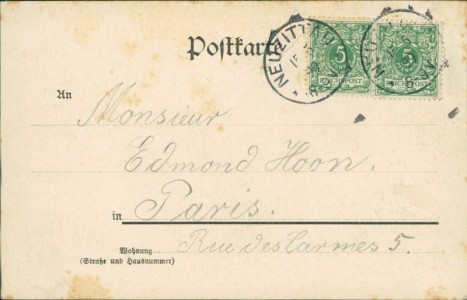 Postkarte
NEUZITTAU
5 5
REICHSPOST
An Monsieur
Edmond Hoon.
in Paris.
Wohnung Rue des Carmes 5.
(Straße und Hausnummer)